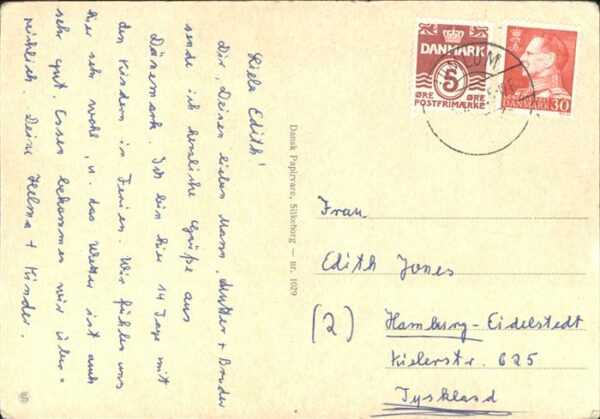 Liebe Edith!
Dir, Deinen lieben Mann, Mutter + Bruder
sende ich herzliche Grüße aus
Dänemark. Ich bin hier 14 Tage mit
den Kindern in Ferien. Wir fühlen uns
hier sehr wohl u. das Wetter ist auch
sehr gut. Essen bekommen wir über=
reichlich. Deine Helma + Kinder.
Dansk Papirvare, Silkeborg — nr. 1029
DANMARK
5
ØRE ØRE
POSTFRIMÆRKE
DANMARK 30
Frau
Edith Jones
(2) Hamburg-Eidelstedt
Kielerstr. 625
Tyskland